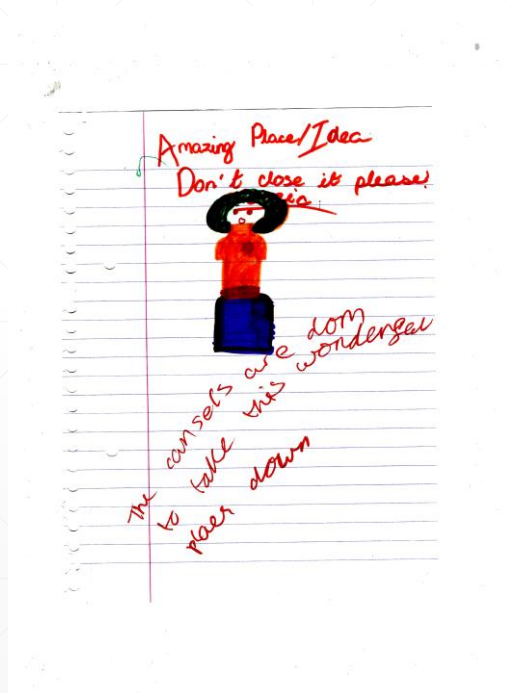 Amazing Place/Idea
Don't close it please!
The cansels are dom
to take this wonderfel
placs down